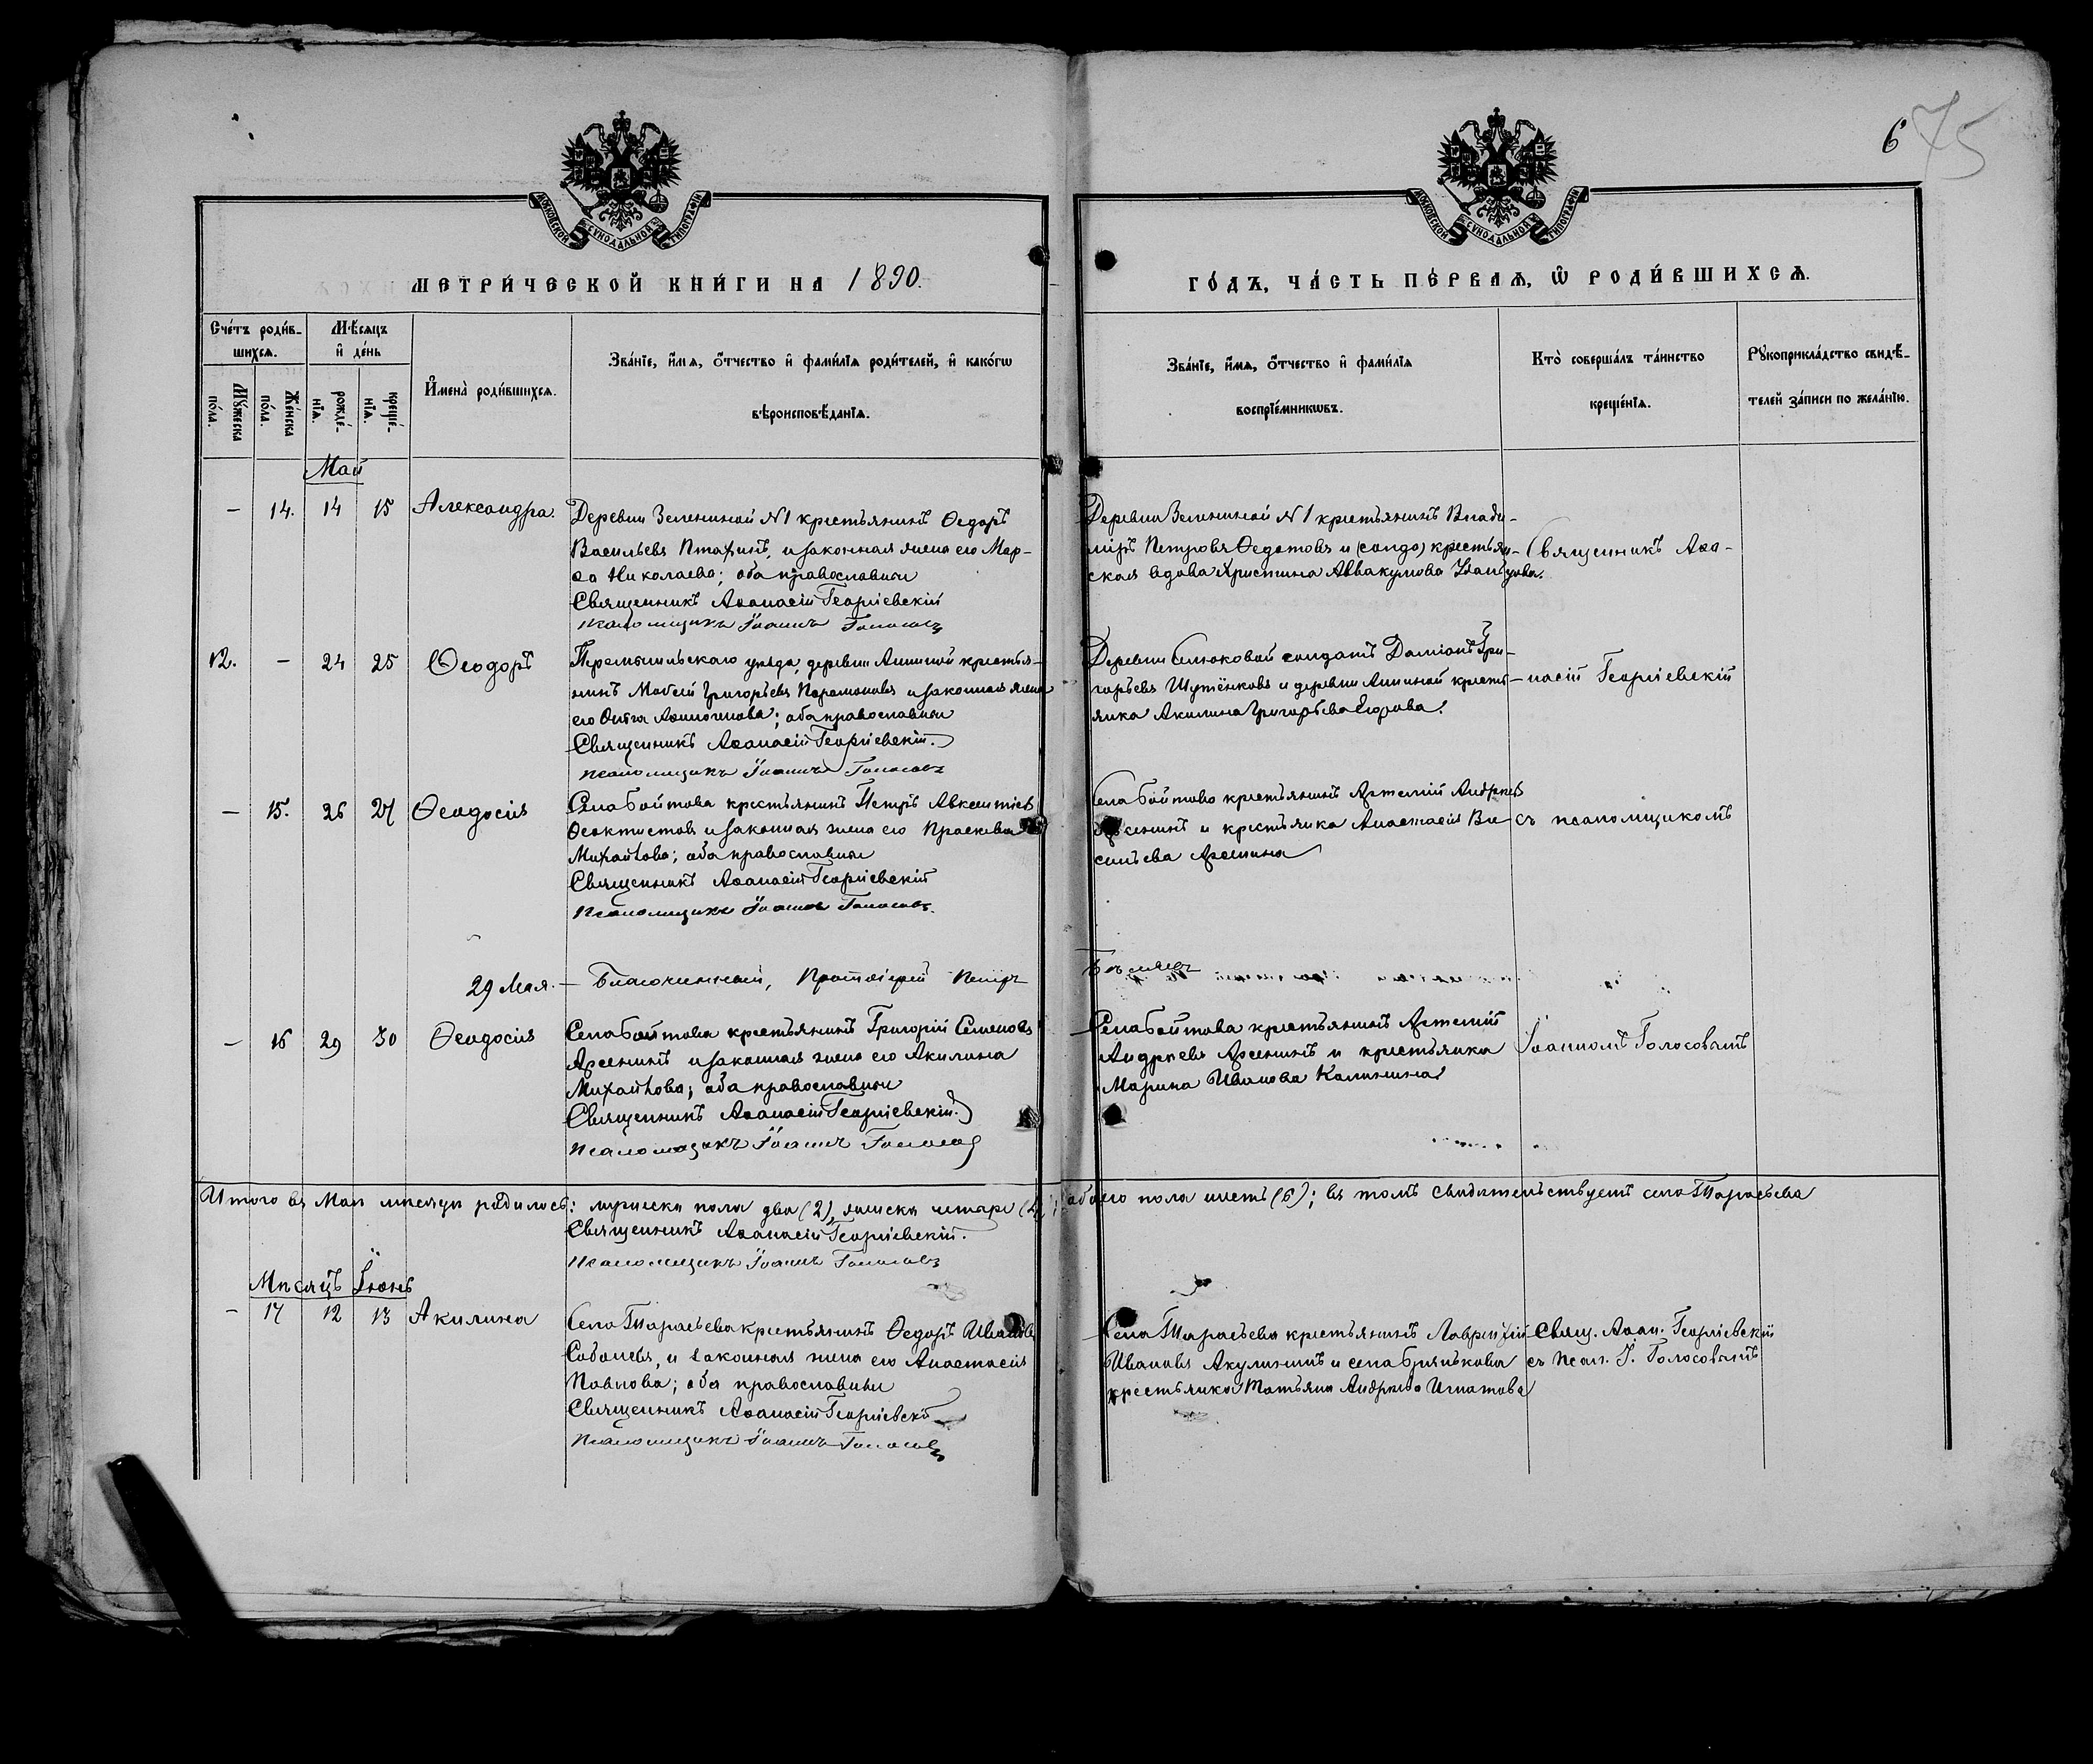 6 75
МОСКОВСКОЙ СѴНОДАЛЬНОЙ ТИПОГРАФІИ
МОСКОВСКОЙ СѴНОДАЛЬНОЙ ТИПОГРАФІИ
МЕТРИ́ЧЕСКОЙ КНИ́ГИ НА 1890.
ГО́ДЪ, ЧА́СТЬ ПЕ́РВАѦ, Ѽ РОДИ́ВШИХСѦ.
Сче́тъ роди́в-
шихсѧ.
Мꙋ́жеска по́ла.
Же́нска по́ла.
Мѣ́сѧцъ
и҆ де́нь
рожде́-
нїѧ.
креще́-
нїѧ.
И҆мена̀ роди́вшихсѧ.
Зва́нїе, и҆́мѧ, ѻ҆́тчество и҆ фами́лїѧ роди́телей, и҆ како́гѡ
вѣроисповѣ́данїѧ.
Зва́нїе, и҆́мѧ, ѻ҆́тчество и҆ фами́лїѧ
воспрїе́мникѡвъ.
Кто̀ соверша́лъ та́инство
креще́нїѧ.
Рꙋкоприкла́дство свидѣ́-
телей за́писи по жела́нїю.
Май
— 14. 14 15 Александра.
Деревни Зелениной №1 крестьянинъ Ѳедоръ
Васильевъ Птахинъ, и законная жена его Мар-
ѳа Николаева; оба православные
Священникъ Аѳанасій Георгіевскій
Псаломщикъ Іоаннъ Голосовъ
Деревни Зелениной №1 крестьянинъ Влади-
міръ Петровъ Ѳедотовъ и (солдо) крестьян-
ская вдова Христина Аввакумова
Священникъ Аѳа-
12. — 24 25 Ѳеодоръ
Перемышльскаго уѣзда, деревни Аниной крестья-
нинъ Григорьевъ Парамоновъ и законная жена
его; оба православные
Священникъ Аѳанасій Георгіевскій.
Псаломщикъ Іоаннъ Голосовъ
Деревни солдатъ Даміонъ Гри-
горьевъ Шутёнковъ и деревни Аниной кресть-
янка Акилина Григорьева
насій Георгіевскій
— 15. 26 27 Ѳеодосія
Села Бойтова крестьянинъ Петръ Авксентіевъ
Ѳеоктистовъ и законная жена его Праскева
Михайлова; оба православные
Священникъ Аѳанасій Георгіевскій
Псаломщикъ Іоаннъ Голосовъ.
Села Бойтова крестьянинъ Артемій Андреевъ
Арсенинъ и крестьянка Анастасія Ва-
сильева Арсенина
съ псаломщикомъ
29 Мая. — Благочинный, Протоіерей Петръ
— 16 29 30 Ѳеодосія
Села Бойтова крестьянинъ Григорій Семеновъ
Арсенинъ и законная жена его Акилина
Михайлова; оба православные
Священникъ Аѳанасій Георгіевскій.
Псаломщикъ Іоаннъ Голосовъ
Села Бойтова крестьянинъ Артемій
Андреевъ Арсенинъ и крестьянка
Марина Иванова Калинина
Іоанномъ Голосовымъ
Итого въ Маѣ мѣсяцѣ родилось: мужеска пола два (2), женска четыре (4), обоего пола шесть (6); въ томъ свидѣтельствуетъ села Тарасьева
Священникъ Аѳанасій Георгіевскій.
Псаломщикъ Іоаннъ Голосовъ
Мѣсяцъ Іюнь
— 17 12 13 Акилина
Села Тарасьева крестьянинъ Ѳедоръ Ивановъ
Соболевъ, и законная жена его Анастасія
Павлова; оба православные
Священникъ Аѳанасій Георгіевскій
Псаломщикъ Іоаннъ Голосовъ
Села Тарасьева крестьянинъ Лаврентій
Ивановъ Акулининъ и села Брянькова
крестьянка Татьяна Андреева Игнатова
Свящ. Аѳан. Георгіевскій
съ псал. І. Голосовымъ